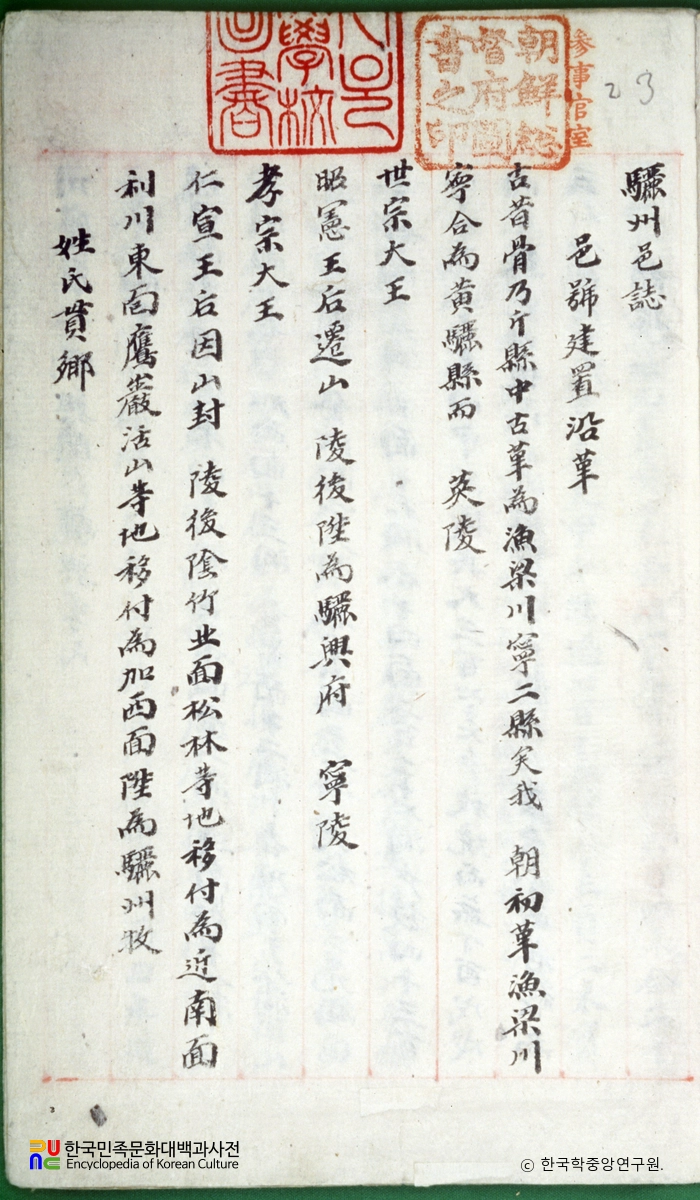 驪州邑誌
邑號建置沿革
古昔骨乃斤縣中古革為漁梁川寧二縣矣我 朝初革漁梁川
寧合為黄驪縣而 英陵
世宗大王
昭憲王后遷山 陵後陞為驪興府 寧陵
孝宗大王
仁宣王后因山封 陵後陰竹北面松林等地移付為近南面
利川東面鷹巖活山等地移付為加西面陞為驪州牧
姓氏貫鄉
參事官室
朝鮮總
督府圖
書之印
學校
圖書
23
한국민족문화대백과사전
Encyclopedia of Korean Culture
ⓒ 한국학중앙연구원.